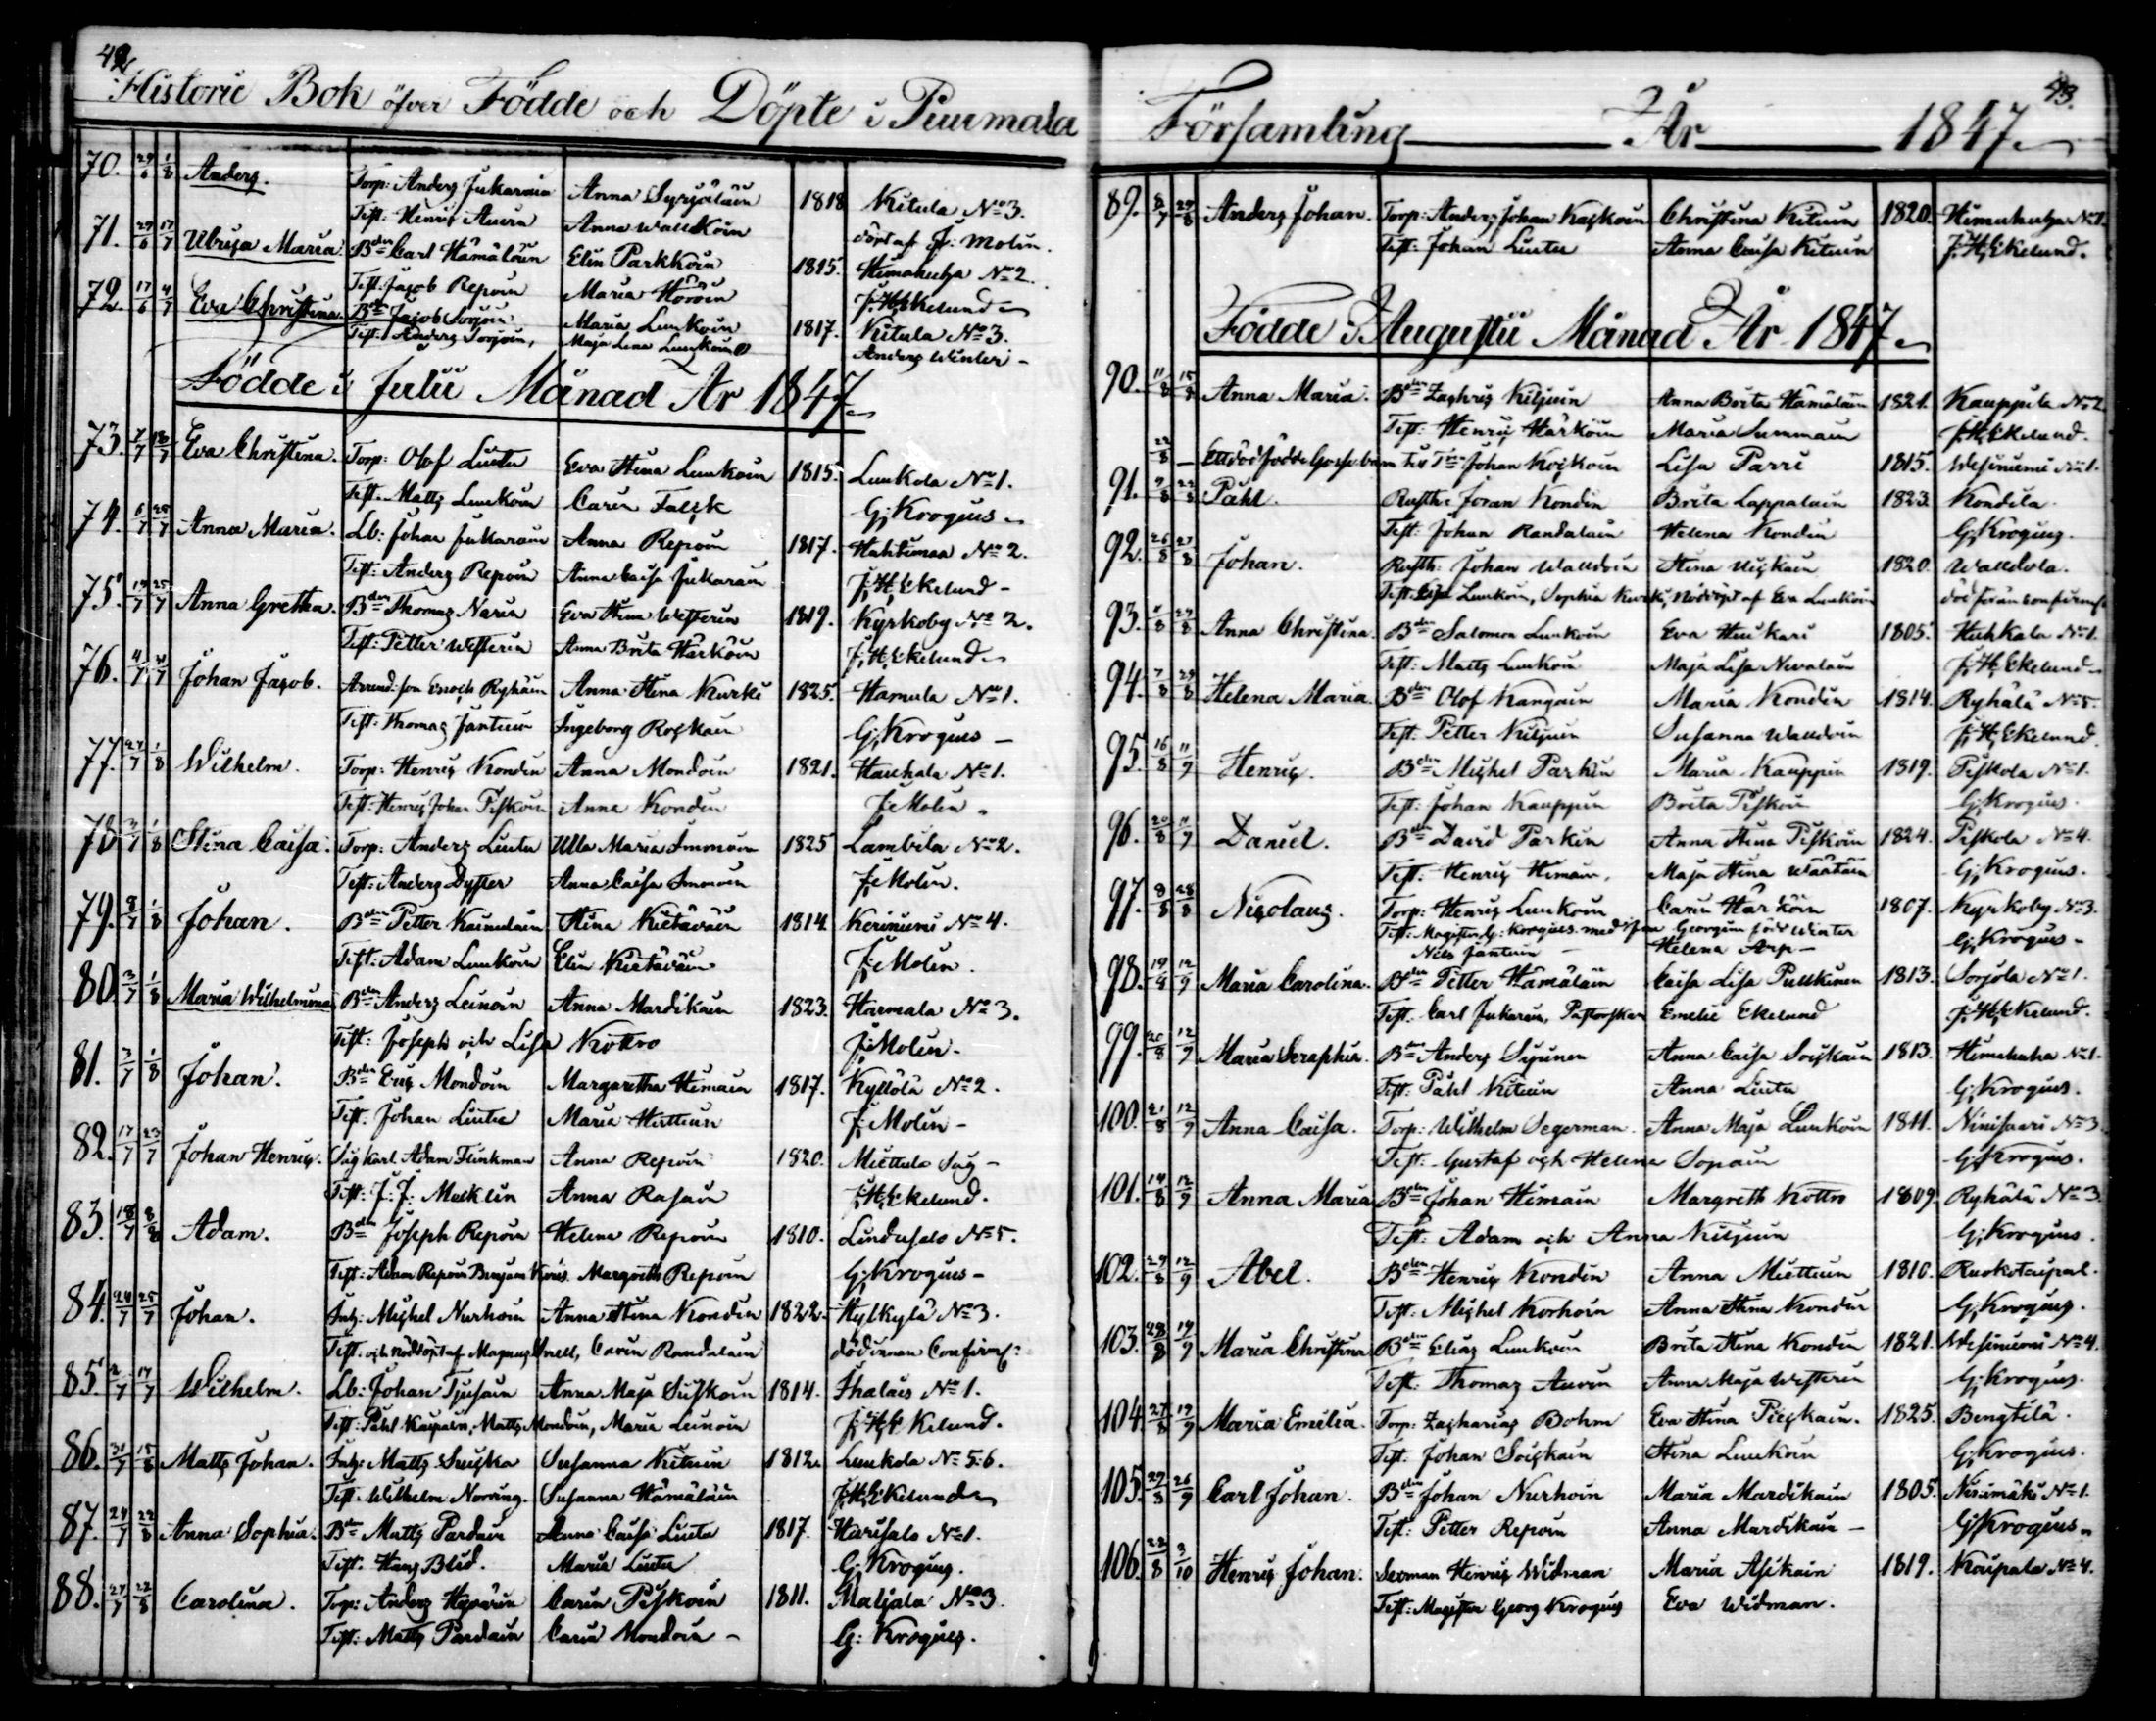 42
Historie Bok öfver Födde och Döpte i Puumala
70. 29/6 1/8 Anders. Torp: Anders Jukarain Anna Syrjäläin 1818 Kitula No 3.
Test: Henric Auvin Anna Wallkoin döpt af J: Molin.
71. 27/6 17/7 Ulrica Maria. Bdn Carl Hämäläin Elin Parkkoin 1815. Himahuha No 2.
Test: Jacob Repoin Maria Hövöin J: H: Ekelund
72. 17/6 4/7 Eva Christina. Bdn Jacob Sorjoin Maria Luukoin 1817. Kitula No 3.
Test: Anders Sorjoin, Maja Lena Luukoin Anders Winter -
Födde i Julii Månad År 1847
73. 7/7 18/7 Eva Christina. Torp: Olof Liuta Eva Stina Luukoin 1815. Luukola No 1.
Test. Matts Luukoin Carin Falck G; Krogius
74. 6/7 25/7 Anna Maria. Lb: Johan Jukarain Anna Repoin 1817. Hahtimaa No 2.
Test: Anders Repoin Anna Caisa Jukarain J; H; Ekelund -
75. 19/7 25/7 Anna Gretha. Bdn Thomas Narin Eva Stina Westerin 1819. Kyrkoby No 2.
Test: Petter Westerin Anna Brita Härköin J; H; Ekelund
76. 4/7 Johan Jacob. Arrend: son Enoch Ryhäin Anna Stina Kurki 1825. Hamula No 1.
Test: Thomas Jäntuin Ingeborg Roskain G; Krogius -
77. 27/7 1/8 Wilhelm. Torp: Henric Kondin Anna Mondoin 1821. Hauhala No 1.
Test: Henric Johan Piskoin Anna Kondin J: Molin.
78 3/7 1/8 Stina Caisa. Torp: Anders Liuta Ulla Maria Immoin 1825 Lambila No 2.
Test: Anders Dyster Anna Caisa Immoin J: Molin.
79. 8/7 1/8 Johan. Bdn Petter Kainulain Stina Kietäväin 1814. Keriniemi No 4.
Test: Adam Luukoin Elin Kietäväin J: Molin.
80. 3/7 1/8 Maria Wilhelmina Bdn Anders Leinoin Anna Mardikain 1823. Harmala No 3.
Test: Joseph och Lisa Kottro J: Molin.
81. 3/7 1/8 Johan. Bdn Eric Mondoin Margaretha Himain 1817. Kyllölä No 2.
Test: Johan Liuta Maria Hattuin J: Molin -
82. 17/7 23/7 Johan Henric. Såg karl Adam Flinkman Anna Repoin 1820. Miettula Såg -
Test: J: J: Macklin Anna Rasain J: H: Ekelund.
83. 18/7 8/8 Adam. Bdn Joseph Repoin Helena Repoin 1810. Lindusalo No 5.
Test: Adam Repoin Benjam Margreth Repoin G; Krogius -
84. 24/7 25/7 Johan. Inh: Michel Nurhoin Anna Stina Kondin 1822. Hylkylä No 3.
Test: och nöddöpt af Magnus Snell, Carin Randalain död innan Confirmt:
85. 2/7 17/7 Wilhelm. Lb: Johan Tjusain Anna Maja Suiskoin 1814. Ihalais No 1.
Test: Påhl Kaipain, Matts Mondoin, Maria Leinoin J: H: Ekelund.
86. 31/7 15/8 Matts Johan. Inh: Matts Suicka Susanna Kituin 1812. Luukola No 5:6.
Test. Wilhelm Norring. Susanna Hämäläin J: H: Ekelund
87. 24/7 22/8 Anna Sophia. Bdn Matts Pardain Anna Caisa Liuta 1817. Harisalo No 1.
Test. Hans Blid. Maria Liuta G; Krogius.
88. 27/7 22/8 Carolina. Torp: Anders Hyvärin Carin Piskoin 1811. Maljala No 3.
Test: Matts Pardain Carin Mondoin - G: Krogius.
43.
Församling År 1847
89. 8/7 29/8 Anders Johan. Torp: Anders Johan Koskoin Christina Kituin 1820. Himahuha No 1.
Test: Johan Liuta Anna Caisa Kituin J: H; Ekelund.
Födde i Augustii Månad År 1847
90. 11/8 15/8 Anna Maria. Bdn Zachris Kiljuin Anna Brita Hämäläin 1821. Kauppila No 2
Test: Henric Härköin Maria Summain J: H; Ekelund.
22/8 — Ett dödfödde Gosse barn till Johan Koskoin Lisa Parri 1815. Wesiniemi No 1.
91. 7/8 22/8 Påhl. Rusth: Jöran Kondin Brita Lappalain 1823. Kondila.
Test: Johan Randalain Helena Kondin G; Krogius.
92. 26/8 27/8 Johan. Rusth: Johan Walldoin Stina Uiskain 1820. Walldola.
Test: Elsa Luukoin, Sophia Kurki, Nöddöpt af Eva Luukoin död förän confirmt
93. 11/8 29/8 Anna Christina. Bdn Salomon Luukoin Eva Huckari 1805. Huhkala No 1.
Test: Matts Luukoin Maja Lisa Nevalain J: H; Ekelund
94. 7/8 29/8 Helena Maria. Bdn Olof Kangain Maria Kondin 1814. Ryhälä No 5.
Test. Petter Kiljuin Susanna Walldoin J; H; Ekelund.
95. 16/8 11/9 Henric. Bdn Michel Parkin Maria Kauppin 1819. Piskola No 1.
Test: Johan Kauppin Brita Piskoin G; Krogius.
96. 20/8 11/9 Daniel. Bdn David Parkin Anna Stina Piskoin 1824. Piskola No 4.
Test. Henric Himain, Maja Stina Wäätäin G; Krogius.
97. 8/8 28/8 Nicolaus. Torp: Henric Luukoin Carin Härköin 1807. Kyrkoby No 3.
Test: Magister G: Krogius med sin Georgina född Winter G; Krogius -
Nils Jäntuin - Helena Arp -
98. 19/8 12/9 Maria Carolina. Bdn Petter Hämäläin Caisa Lisa Pullkinen 1813. Sorjola No 1.
Test. Carl Jukarin, Pastorskan Emelie Ekelund J: H; Ekelund.
99. 20/8 12/9 Maria Seraphia. Bdn Anders Syrinen Anna Caisa Soiskain 1813. Himahuha No 1.
Test: Påhl Kituin Anna Liuta G; Krogius.
100. 21/8 12/9 Anna Caisa. Torp: Wilhelm Segerman. Anna Maja Luukoin 1811. Niinisaari No 3
Test: Gustaf och Helena Sopain G; Krogius.
101. 14/8 12/9 Anna Maria Bdn Johan Himain Margreth Kottro 1809. Ryhälä No 3
Test: Adam och Anna Kiljuin G; Krogius.
102. 29/8 12/9 Abel. Bdn Henric Kondin Anna Miettuin 1810. Ruokotaipal.
Test: Michel Korhoin Anna Stina Kondin G; Krogius.
103. 28/8 19/9 Maria Christina Bdn Elias Luukoin Brita Stina Kondin 1821. Wesiniemi No 4.
Test. Thomas Auvin Anna Maja Westerin G; Krogius.
104. 27/8 19/9 Maria Emilia. Torp: Zacharias Bohm Eva Stina Pieskain. 1825. Bengtilä.
Test. Johan Soiskain Stina Luukoin G; Krogius.
105. 29/8 26/9 Carl Johan. Bdn Johan Nurhoin Maria Mardikain 1805. Niinimäki No 1.
Test: Petter Repoin Anna Mardikain - G; Krogius
106. 22/8 3/10 Henric Johan. Sexman Henric Widman Maria Asikain 1819. Kaipala No 4.
Test: Magister Georg Krogius Eva Widman.